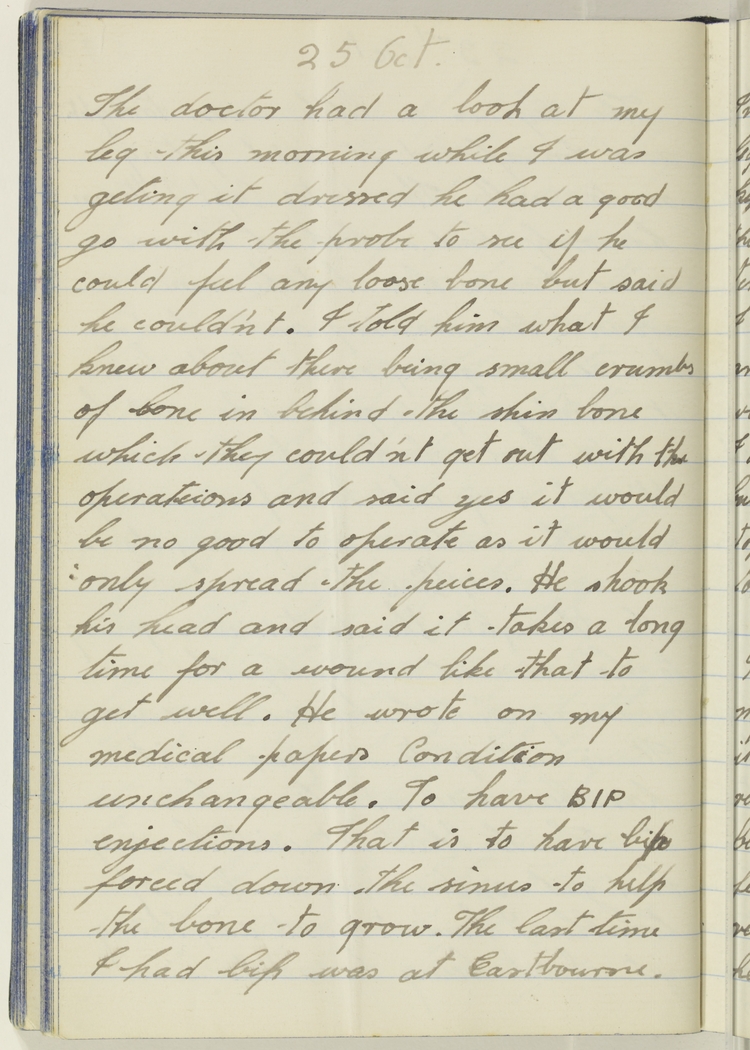 25 Oct.
The doctor had a look at my
leg this morning while I was
geting it dressed he had a good
go with the probe to see if he
could feel any loose bone but said
he could'nt. I told him what I
knew about there being small crumbs
of bone in behind the shin bone
which they could'nt get out with the
operateions and said yes it would
be no good to operate as it would
only spread the peices. He shook
his head and said it takes a long
time for a wound like that to
get well. He wrote on my
medical papers Condition
unchangeable. To have BIP
enjections. That is to have bip
forced down the sinus to help
the bone to grow. The last time
I had bip was at Eastbourne.